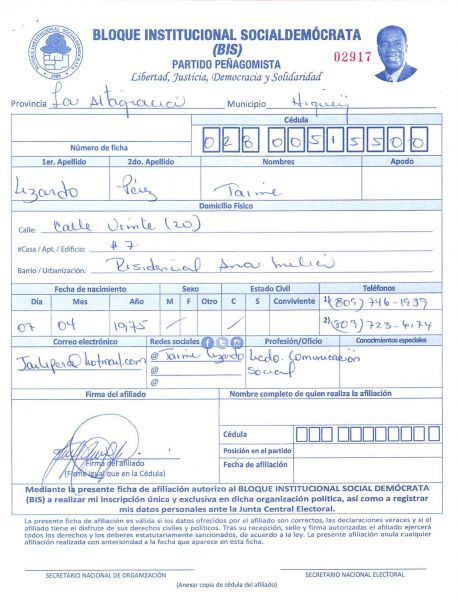 BLOQUE INSTITUCIONAL SOCIALDEMÓCRATA
(BIS)
02917
PARTIDO PEÑAGOMISTA
Libertad, Justicia, Democracia y Solidaridad
Provincia La Altagracia Municipio Higüey
Cédula
Número de ficha 028 0051550 0
1er. Apellido 2do. Apellido Nombres Apodo
Lizardo Pérez Jaime
Domicilio Físico
Calle: Calle Veinte (20)
#Casa / Apt. / Edificio: # 7
Barrio / Urbanización: Residencial Ana
Fecha de nacimiento Sexo Estado Civil Teléfonos
Día Mes Año M F Otro C S Conviviente 1) (809) 746-1939
07 04 1975 / / 2) (809) 723-6174
Correo electrónico Redes sociales Profesión/Oficio Conocimientos especiales
@hotmail.com @ Jaime Lizardo Licdo. Comunicación
@ Social
@
Firma del afiliado Nombre completo de quien realiza la afiliación
Cédula
Posición en el partido
Firma del afiliado Fecha de afiliación
(Firme igual que en la Cédula)
Mediante la presente ficha de afiliación autorizo al BLOQUE INSTITUCIONAL SOCIAL DEMÓCRATA
(BIS) a realizar mi inscripción única y exclusiva en dicha organización política, así como a registrar
mis datos personales ante la Junta Central Electoral.
La presente ficha de afiliación es válida si los datos ofrecidos por el afiliado son correctos, las declaraciones veraces y si el
afiliado tiene el disfrute de sus derechos civiles y políticos. Tras su recepción, sello y firma autorizadas el afiliado ejercerá
todos los derechos y los deberes estatutariamente sancionados, de acuerdo a la ley. La presente afiliación anula cualquier
afiliación realizada con anterioridad a la fecha que aparece en esta ficha.
SECRETARIO NACIONAL DE ORGANIZACIÓN SECRETARIO NACIONAL ELECTORAL
(Anexar copia de cédula del afiliado)